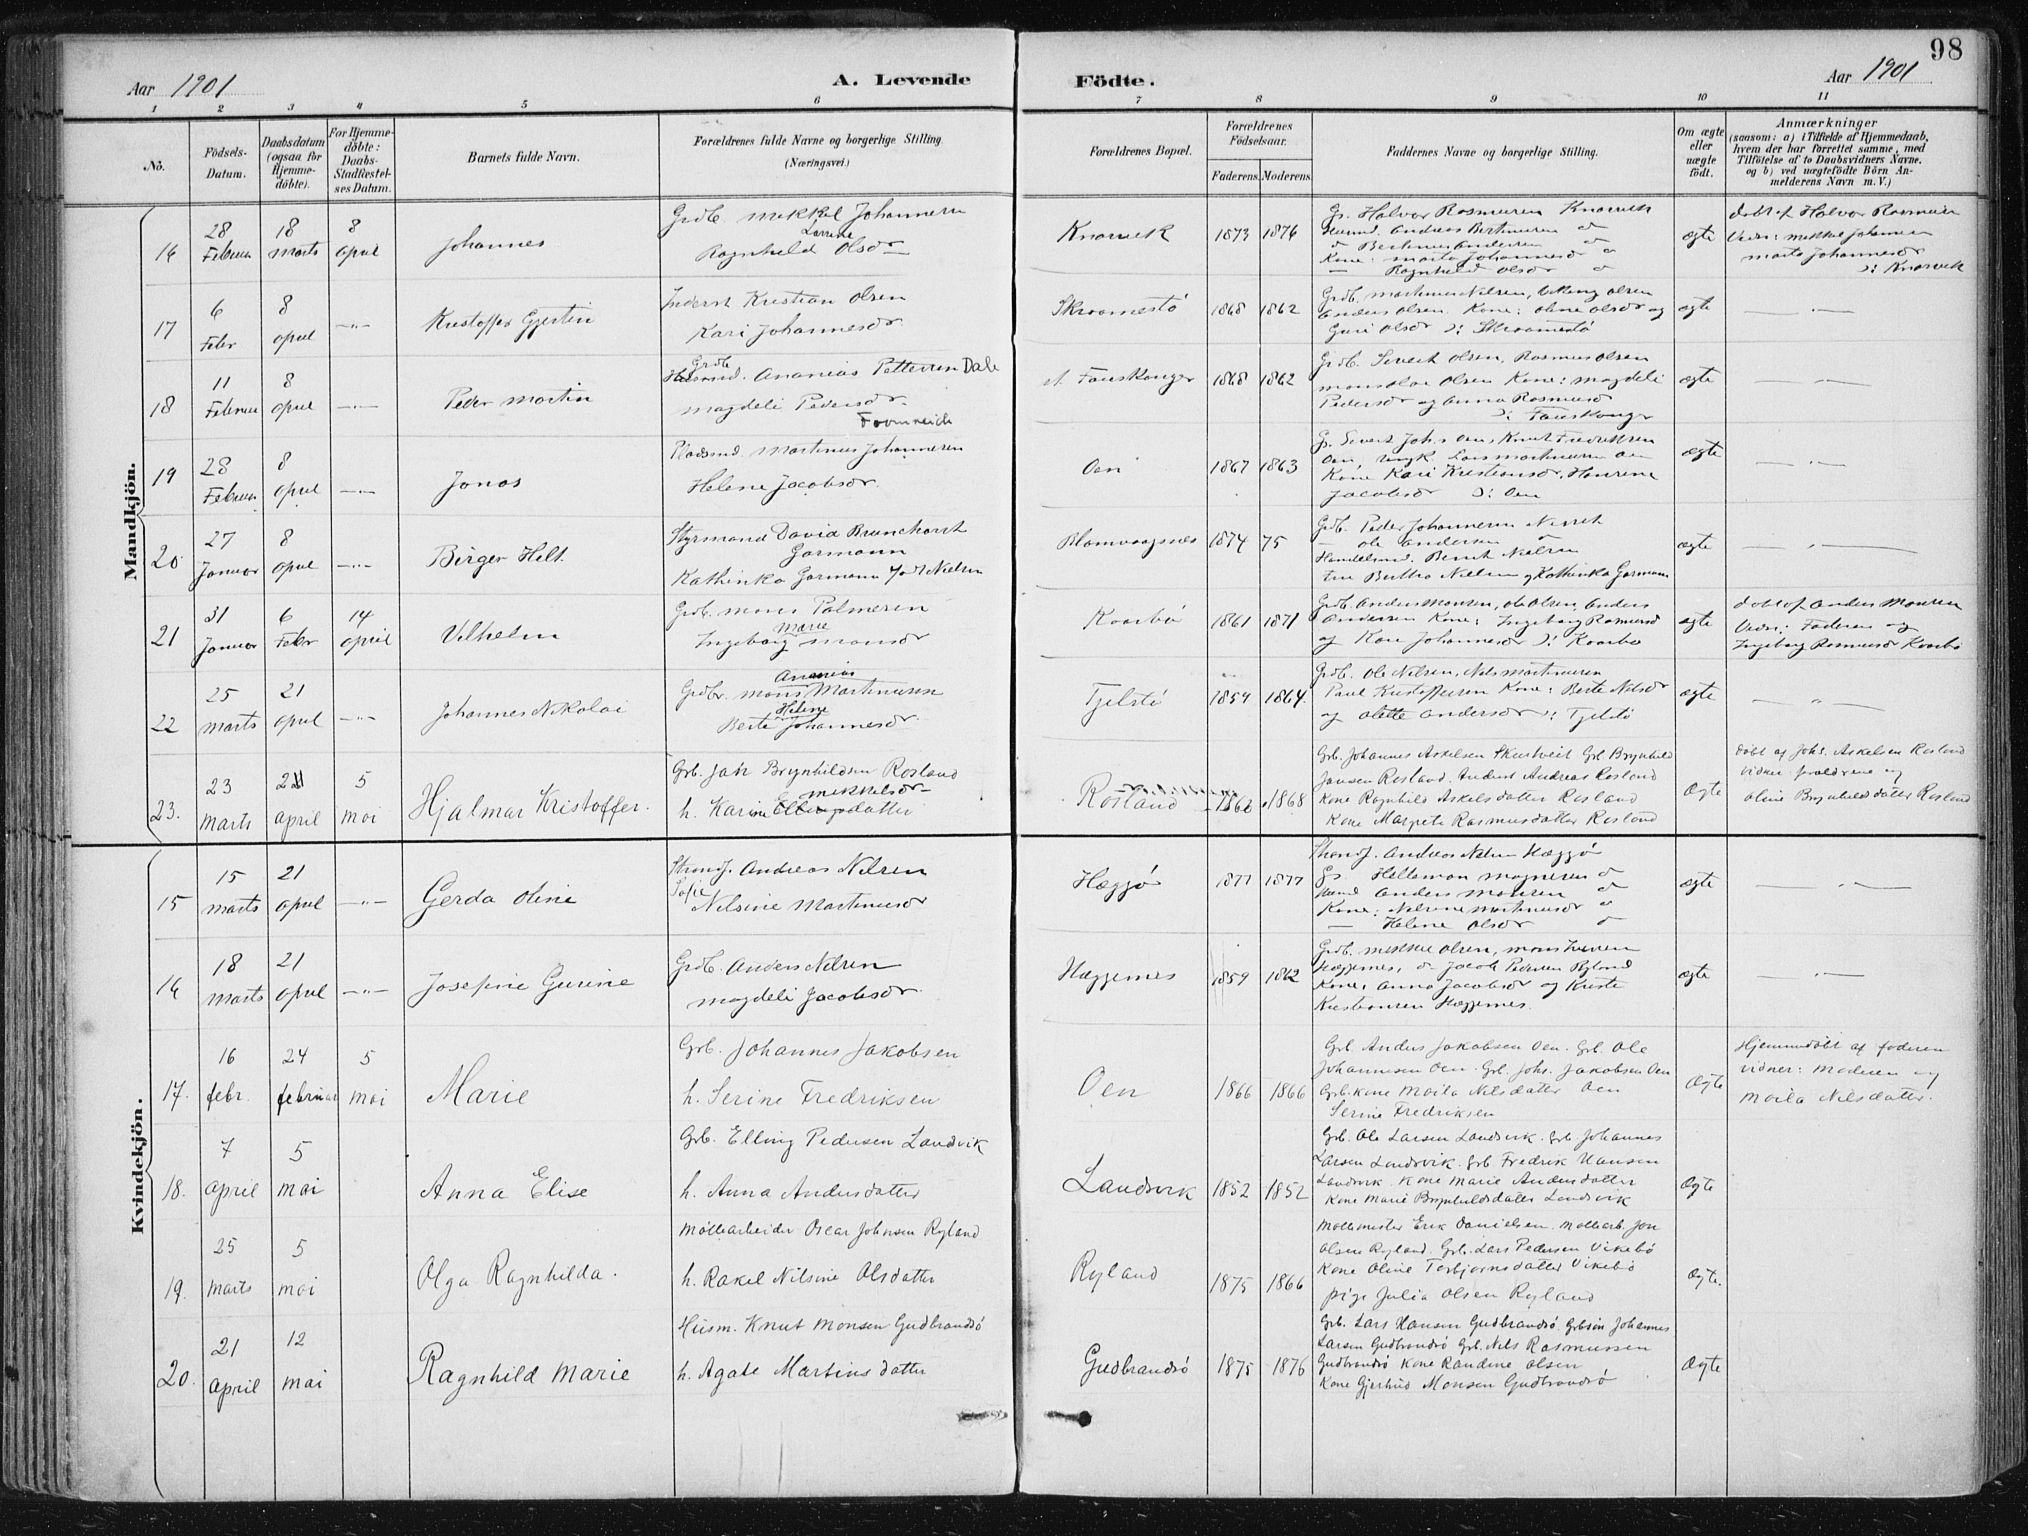 98
Aar 1901
A. Levende
Födte.
Aar 1901
1 2 3 4 5 6 7 8 9 10 11
No.
Födsels-Datum.
Daabsdatum (ogsaa for Hjemmedöbte).
For Hjemmedöbte: Daabs-Stadfæstelses Datum.
Barnets fulde Navn.
Forældrenes fulde Navne og borgerlige Stilling (Næringsvei.)
Forældrenes Bopæl.
Forældrenes Födselsaar.
Faderens. Moderens.
Faddernes Navne og borgerlige Stilling.
Om ægte eller uægte födt.
Anmærkninger
(saasom: a) i Tilfælde af Hjemmedaab, hvem der har forrettet samme, med Tilföielse af to Daabsvidners Navne, og b) ved uægtefödte Börn Anmelderens Navn m. V.)
Mandkjön.
16
28 Februar
18 marts
8 april
Johannes
Grdb. Mekkel Johannesen
Lorrine
Ragnhild Olsdr
Knarvik
1873 1876
Gs. Halvor Rasmusen Knarvik
Husmd. Andreas Bertinusen do
do Bertinus Andersen do
Kone: Marta Johannesdr do
— Ragnhild Olsdr do
ægte
døbt af Halvor Rasmusen
Vidn: Mekkel Johannesen
Marta Johannesdr
): Knarvik
17
6 Febr
8 april
—"—
Kristoffer Gjertin
Inderst Kristian Olsen
Kari Johannesdr.
Skraamestö
1868 1862
Grdb. Martinus Nilsen, Viking Olsen
Anders Olsen Kone: Oline Olsdr og
Guri Olsdr ): Skraamestö
ægte
— " —
18
11 Februar
8 april
—"—
Peder Martin
Grdb
Husmd. Ananias Pettersen Dale
Magdeli Pedersdr.
Fauskanger
1868 1862
Grdb. Sivert Olsen, Rasmus Olsen
Mons Olai Olsen Kone: Magdeli
Pedersdr og Anna Rasmusd
): Fauskanger
ægte
— " —
19
28 Februar
8 april
—"—
Jonas
Pladsmd. Martinus Johannesen
Helene Jacobsdr.
Oen
1867 1863
Gs. Sivert Johs. Oen, Knut Fredriksen
Oen, ungk. Lars Martinusen Oen
Kone Kari Kristiansdr, Hansine
Jacobsdr ): Oen
ægte
— " —
20
27 Januar
8 april
—"—
Birger Helt.
Styrmand David Brunchorst
Garmann
Kathinka Garmann født Nielsen
Blomvaagnes
1874 75
Grdb. Peder Johannesen Nesset
— Ole Andersen do
Handelsmd. Bernt Nielsen
Fru Bertha Nielsen og Kathinka Garmann
ægte
— " —
21
31 Januar
6 Febr
14 april
Vilhelm
Grdb. Mons Palmesen
Marie
Ingeborg Monsdr
Kvarbö
1861 1871
Grdb. Anders Monsen, Ole Olsen, Anders
Andersen Kone: Ingeborg Rasmusd
og Kari Johannesdr ): Kvarbø
ægte
døbt af Anders Monsen
Vidn: Faderen og
Ingeborg Rasmusdr Kvarbø
22
25 marts
21 april
—"—
Johannes Nikolai
Ananias
Grdbr. Mons Martinusen
Helene
Berte Johannesdr.
Tjelstö
1859 1864.
Grdb. Ole Nilsen, Nils Martinusen
Paul Kristoffersen Kone: Berte Nilsdr
og Olette Andersdr ): Tjelstö
ægte
— " —
23.
23 Marts
21 april
5 mai
Hjalmar Kristoffer.
Grb. Jah Brynhildsen Rosland
Mikkelsdr
h. Karine Ellingsdatter
Rosland
1868 1868
Grb. Johannes Askelsen Skurtveit Grb Brynhild
Jansen Rosland. Anders Andreas Rosland
Kone Ragnhild Askelsdatter Rosland
Kone Margrete Rasmusdatter Rosland
Ægte
døbt af Johs. Askelsen Rosland
vidner: forældrene og
Oline Brynhildsdatter Rosland
Kvindekjön.
15
15 marts
21 april
—"—
Gerda Oline
Strandf. Andreas Nilsen
Sofie
Nilsine Martinusdr
Hæggö
1877 1877
Strandf. Andreas Nilsen Hæggø
Gs. Helleman Magnesen do
Husmd Anders Monsen do
Kone: Nilsine Martinusdr do
— Helene Olsdr do
ægte
— " —
16
18 marts
21 april
—"—
Josefine Gurine
Grdb. Anders Nilsen
Magdeli Jacobsdr.
Hæggernes
1859 1862
Grdb. Mekkel Olsen, Mons Iversen
Hæggernes, do Jacob Pedersen Ryland
Kone: Anna Jacobsdr og Kirste
Kristiansen Hæggernes.
ægte
— " —
17.
16 febr.
24 februar
5 mai
Marie
Grb. Johannes Jakobsen
h. Serine Fredriksen
Oen
1866 1866
Grb. Anders Jakobsen Oen. Grb. Ole
Johannesen Oen. Grb. Johs. Jakobsen Oen
Grb. kone Moila Nilsdatter Oen
Serine Fredriksen
Ægte
Hjemmedøbt af faderen
vidner: Moderen og
Moila Nilsdatter.
18.
7 april
5 mai
Anna Elise
Grb. Elling Pedersen Landsvik
h. Anna Andersdatter
Landsvik
1852 1852
Grb. Ole Larsen Landsvik. Grb Johannes
Larsen Landsvik. Grb Fredrik Hansen
Landsvik. Kone Marie Andersdatter
Kone Marie Brynhildsdatter Landsvik
Ægte
19.
25 Marts
5 mai
Olga Ragnhilda.
Møllearbeider Oscar Johnsen Ryland
h. Rakel Nilsine Olsdatter
Ryland
1875 1866
Møllemester Erik Danielsen. Møllearb. Jon
Olsen Ryland. Grb. Lars Pedersen Vikebø
Kone Oline Torbjørnsdatter Vikebø
pige Julia Olsen Ryland
Ægte.
20.
21 april
12 mai
Ragnhild Marie
Husm. Knut Monsen Gudbrandsö
h. Agate Martinsdatter
Gudbrandsö
1875 1876
Grb. Lars Hansen Gudbrandsö. Grbsøn Johannes
Larsen Gudbrandsö Grb. Nils Rasmussen
Gudbrandsö Kone Randine Olsen
Kone Gjertrud Monsen Gudbrandsö
Ægte